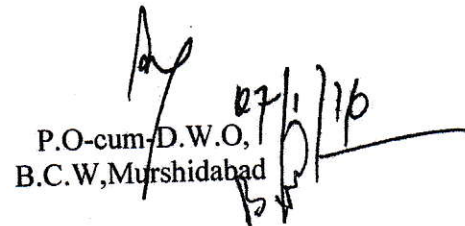 07/1/16
P.O-cum-D.W.O,
B.C.W,Murshidabad